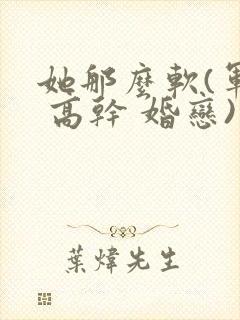 她那麼軟(軍
高幹 婚戀)
葉煒先生